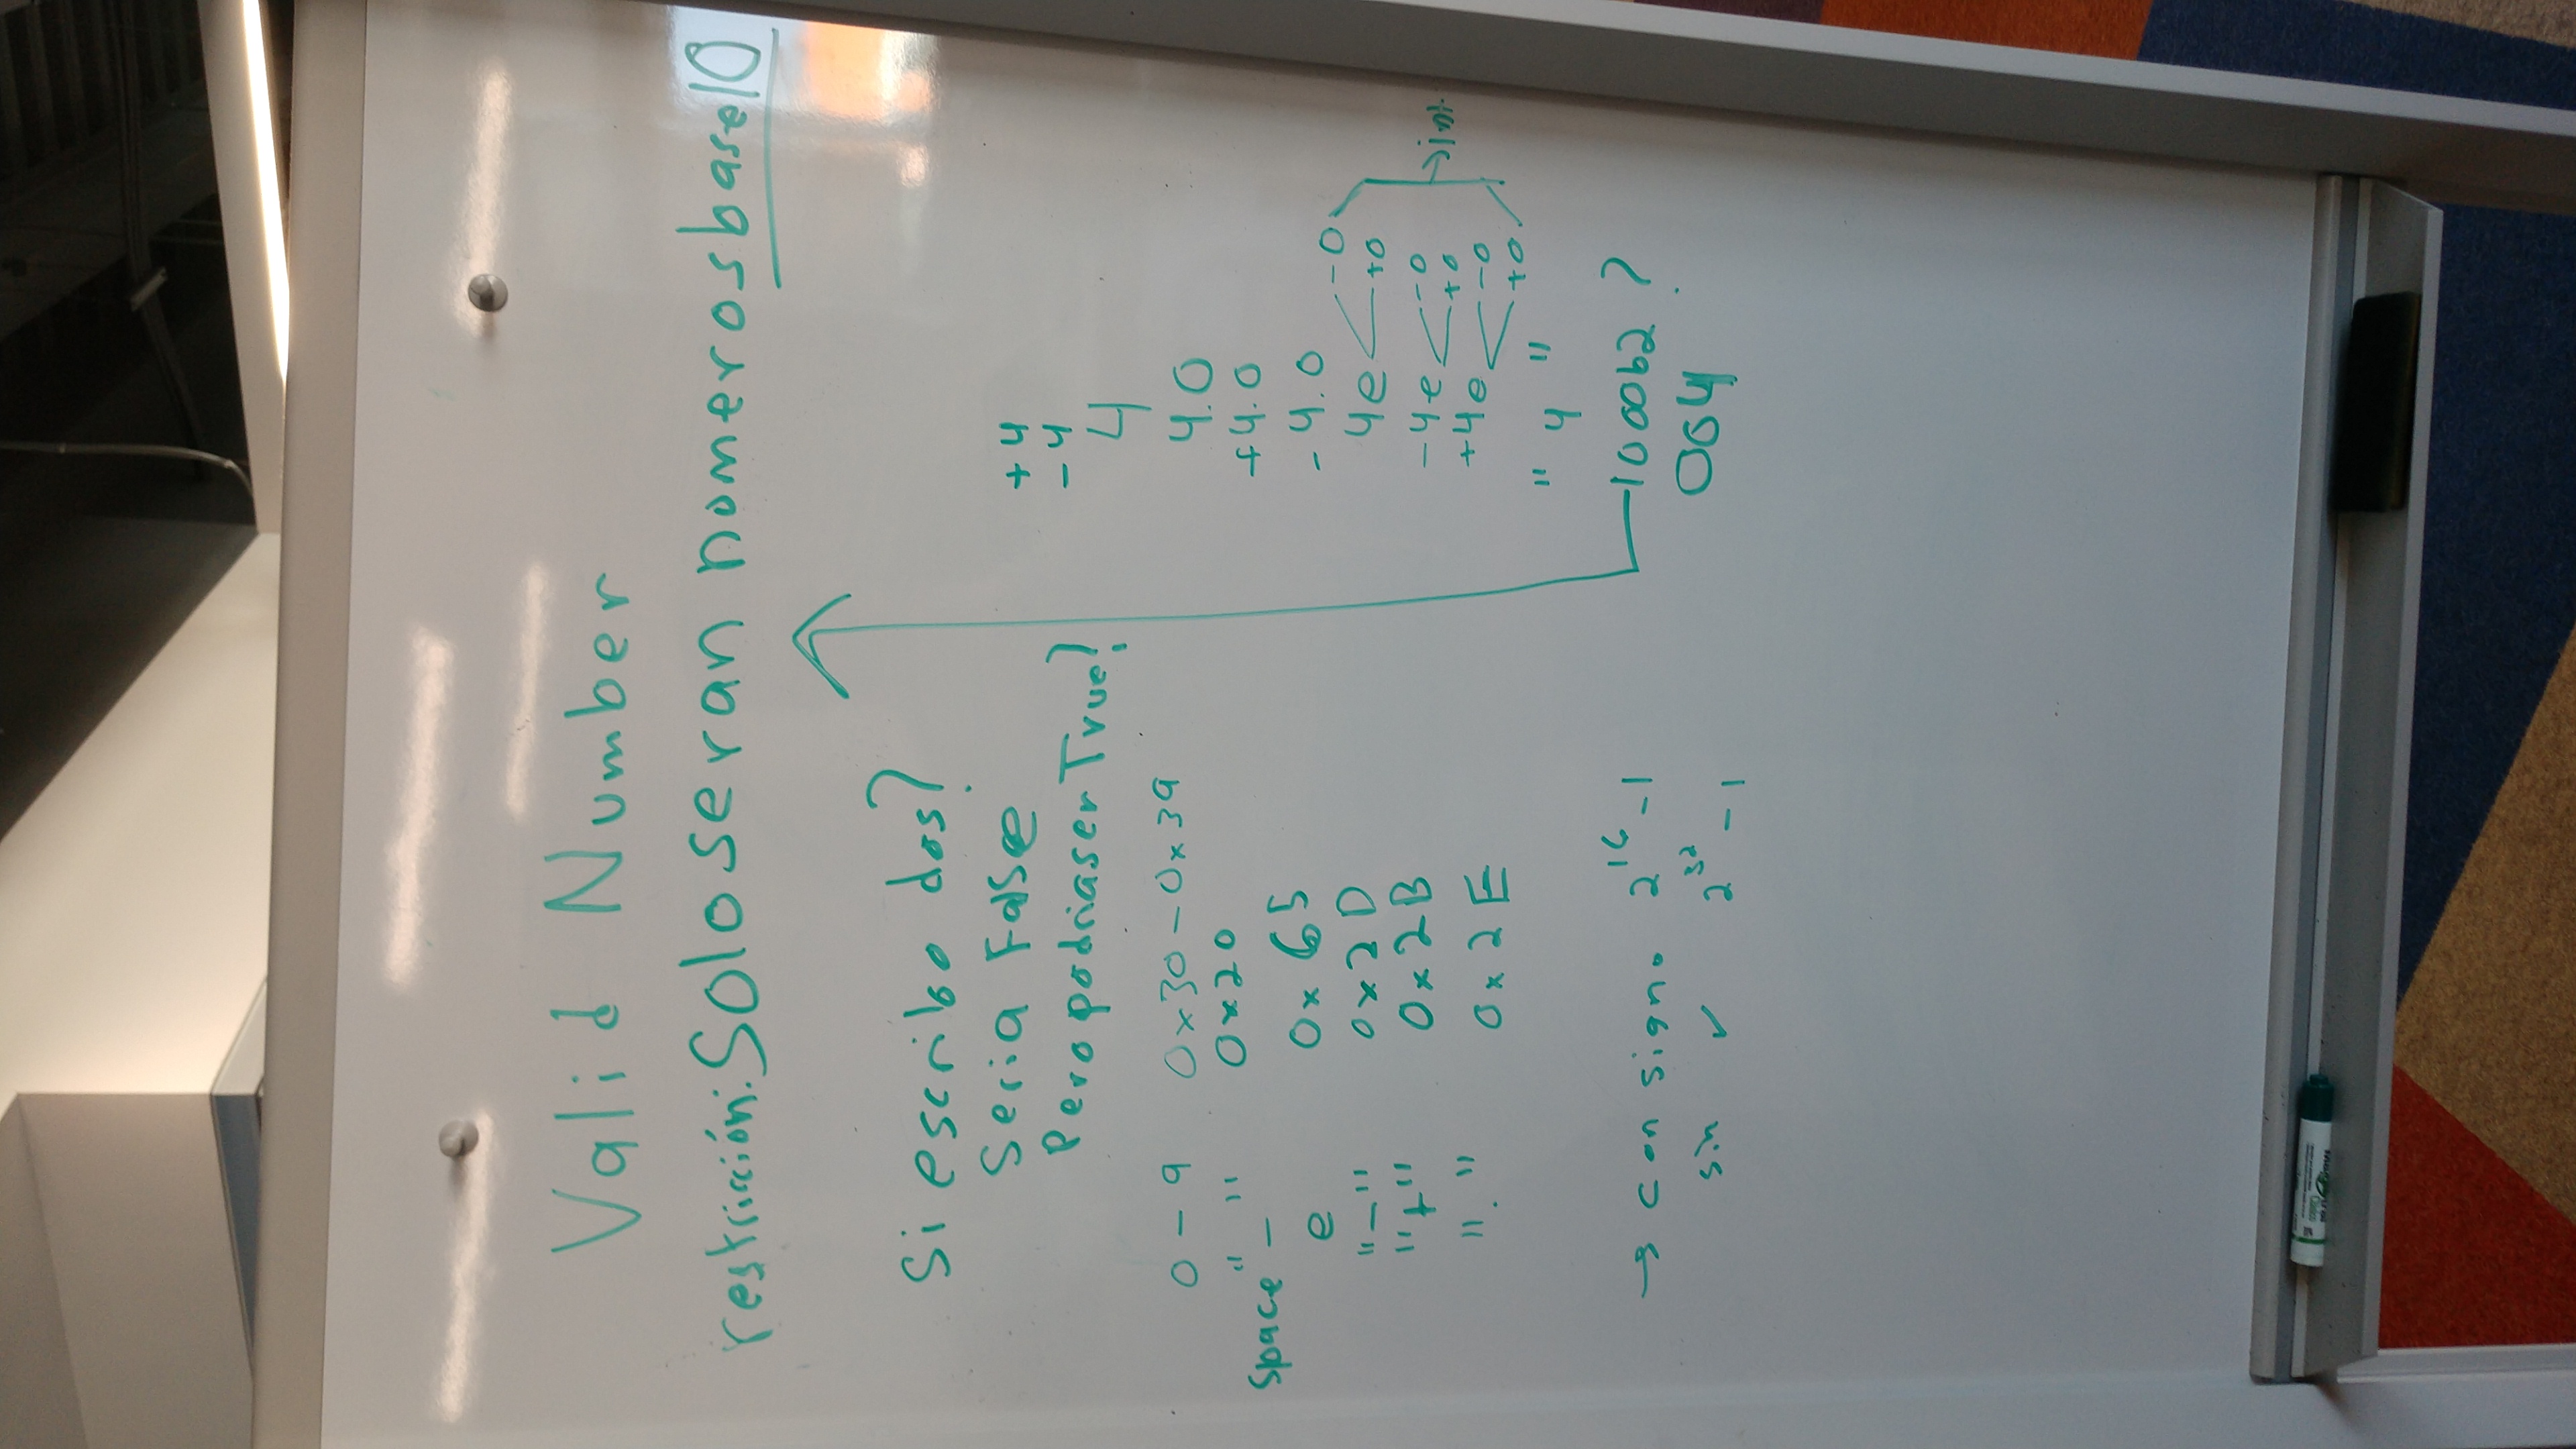 Valid Number
restricción: Solo seran numeros base 10
Si escribo dos?
Seria False
Pero podria ser True?
0 - 9 0x30 - 0x39
" "
Space _ 0x20
e 0x65
"-" 0x2D
"+" 0x2B
"." 0x2E
→ con signo 2^16 - 1
sin ✓ 2^32 - 1
+4
-4
4
4.0
+4.0
-4.0
4e -0 +0
-4e -0 +0 → int
+4e -0 +0
" 4 "
100062 ?
004